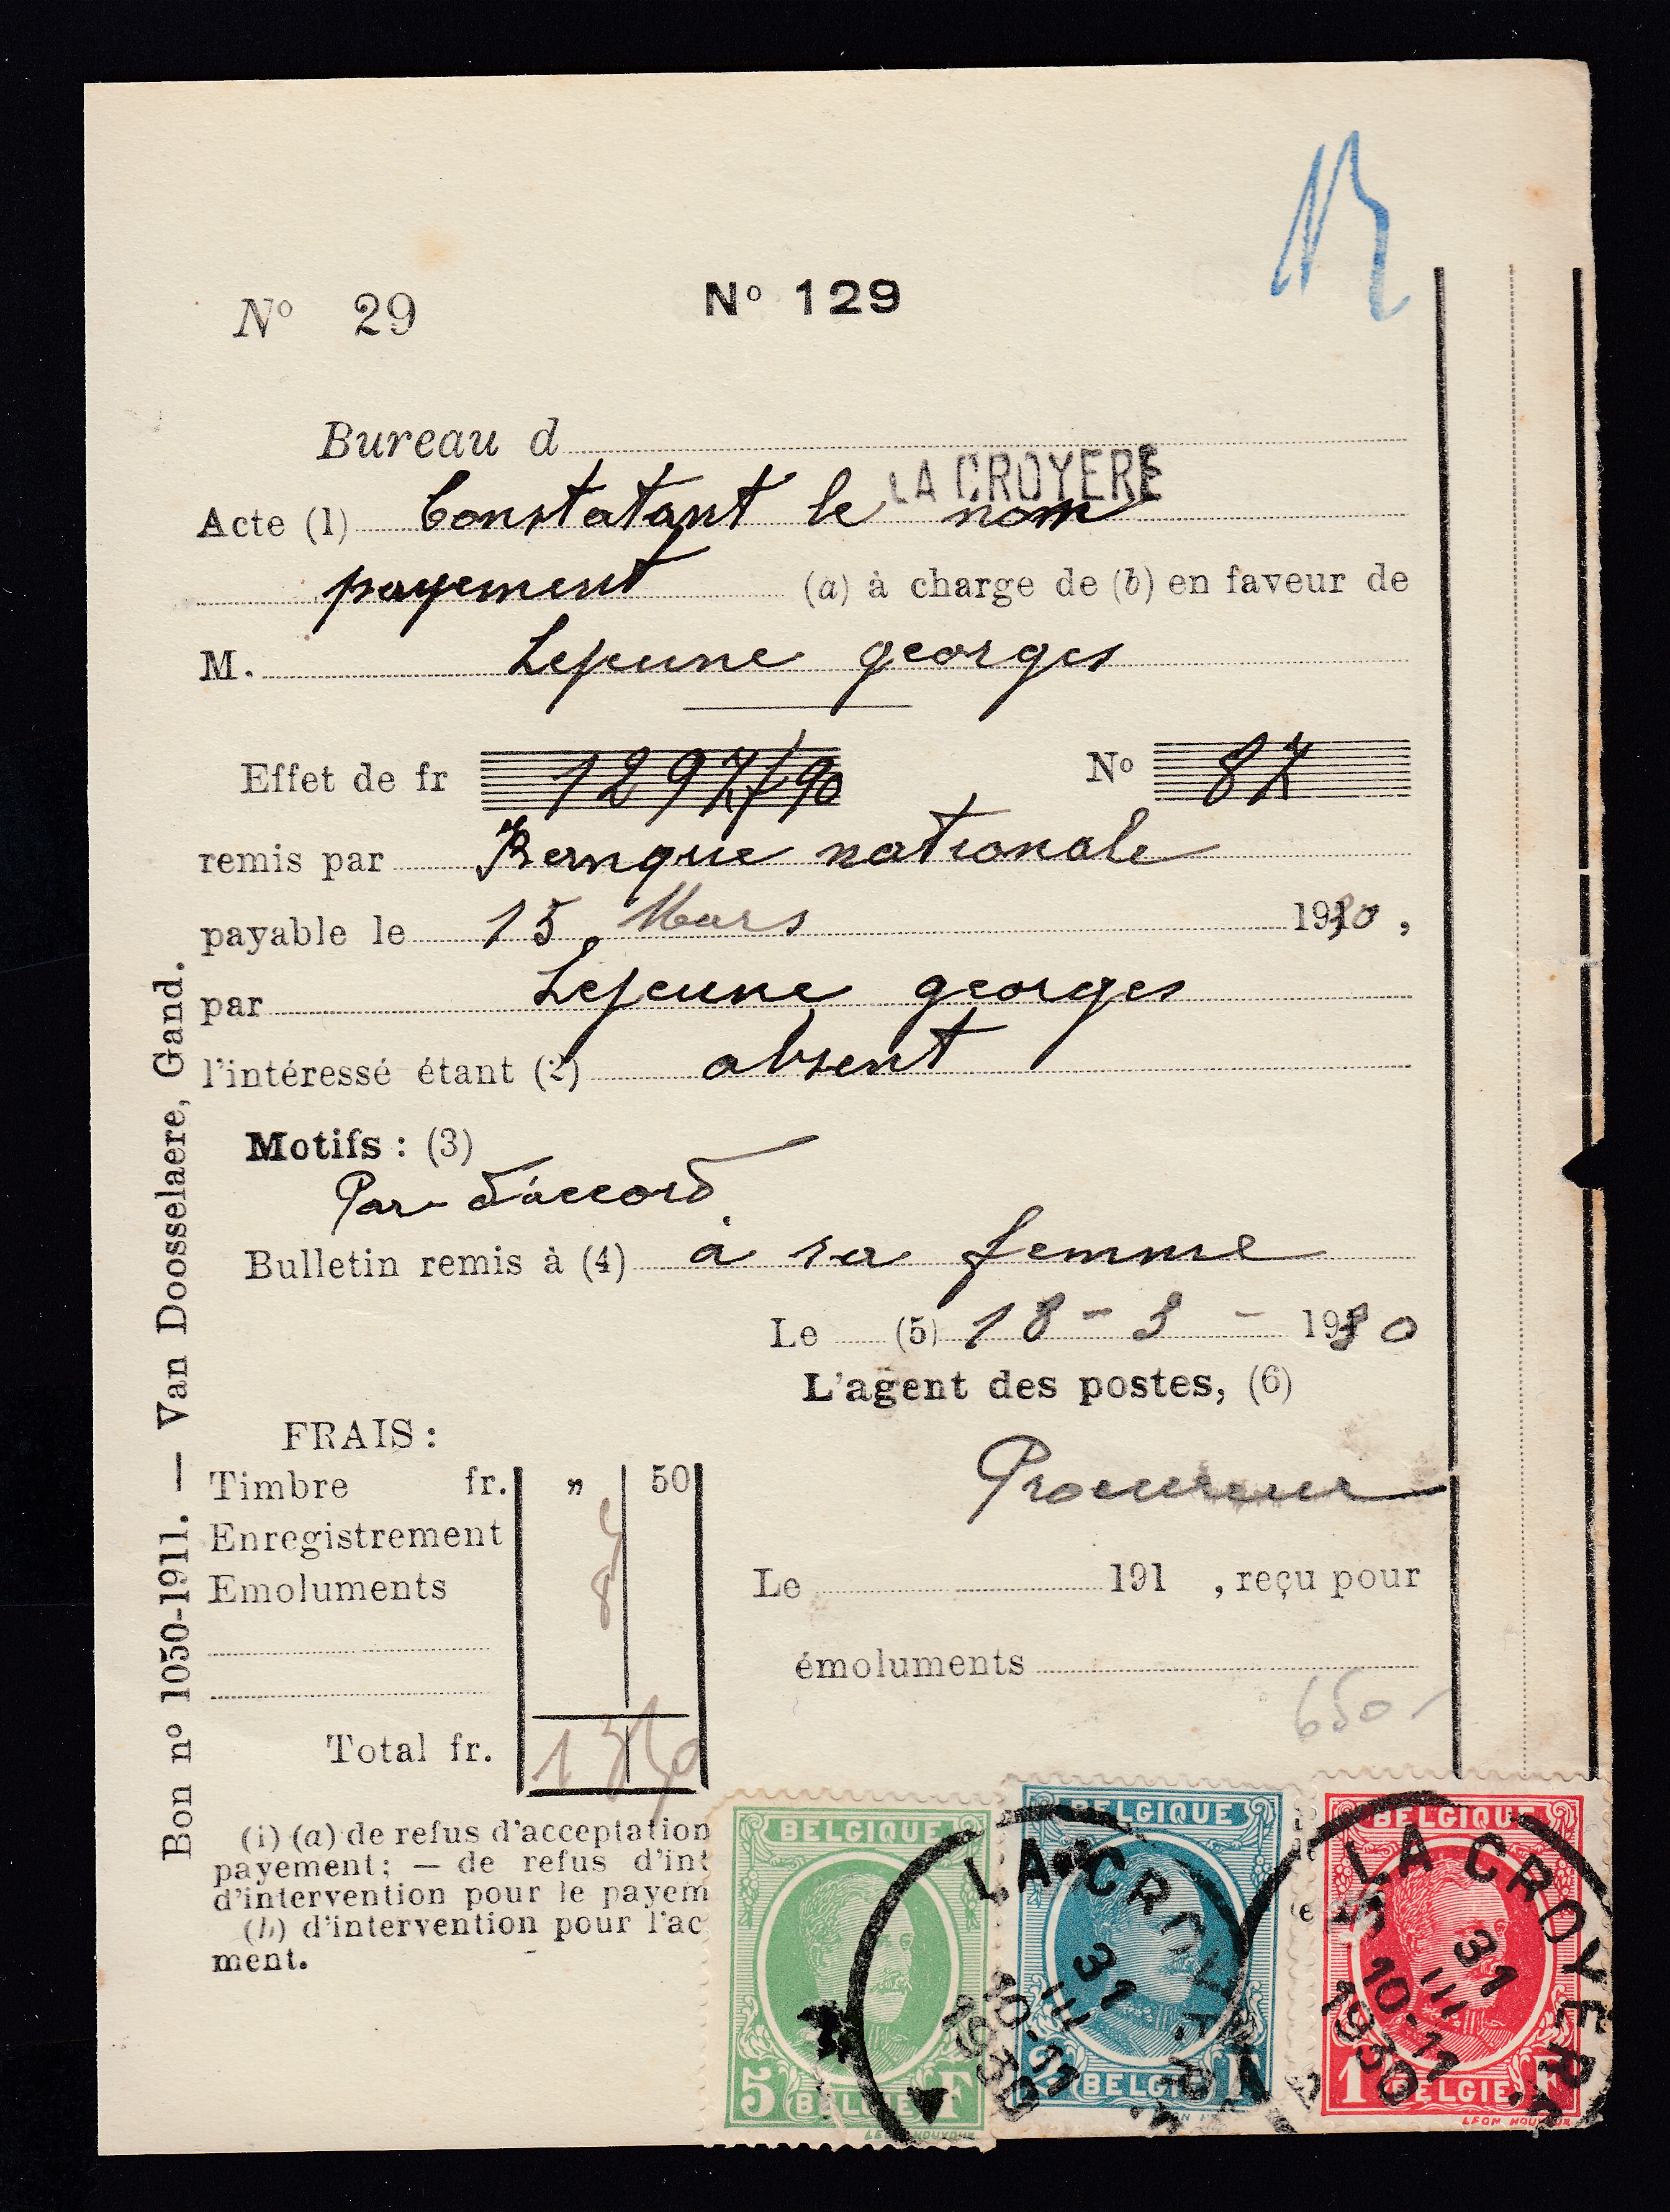 N° 29
N° 129
Bureau d
LA CROYERE
Acte (1) Constatant le nom
payement (a) à charge de (b) en faveur de
M. Lejeune georges
Effet de fr 1297/90 N° 87
remis par Banque nationale
payable le 15 Mars 1930,
par Lejeune georges
l'intéressé étant (2) absent
Motifs : (3)
Pas d'accord
Bulletin remis à (4) à sa femme
Le (5) 18 - 3 - 1930
L'agent des postes, (6)
Procureur
FRAIS :
Timbre fr. „ 50
Enregistrement
Emoluments 8
Le 191 , reçu pour
émoluments
650-
Total fr.
(1) (a) de refus d'acceptation
payement; — de refus d'int
d'intervention pour le payem
(b) d'intervention pour l'ac
ment.
Bon n° 1050-1911. — Van Doosselaere, Gand.
BELGIQUE
5 F
BELGIE
LEON HOUYOUX
BELGIQUE
BELGIE
BELGIQUE
1 F
BELGIE
LEON HOUYOUX
LA CROYERE
31 III 10-11 1930
LA CROYERE
31 III 10-11 1930